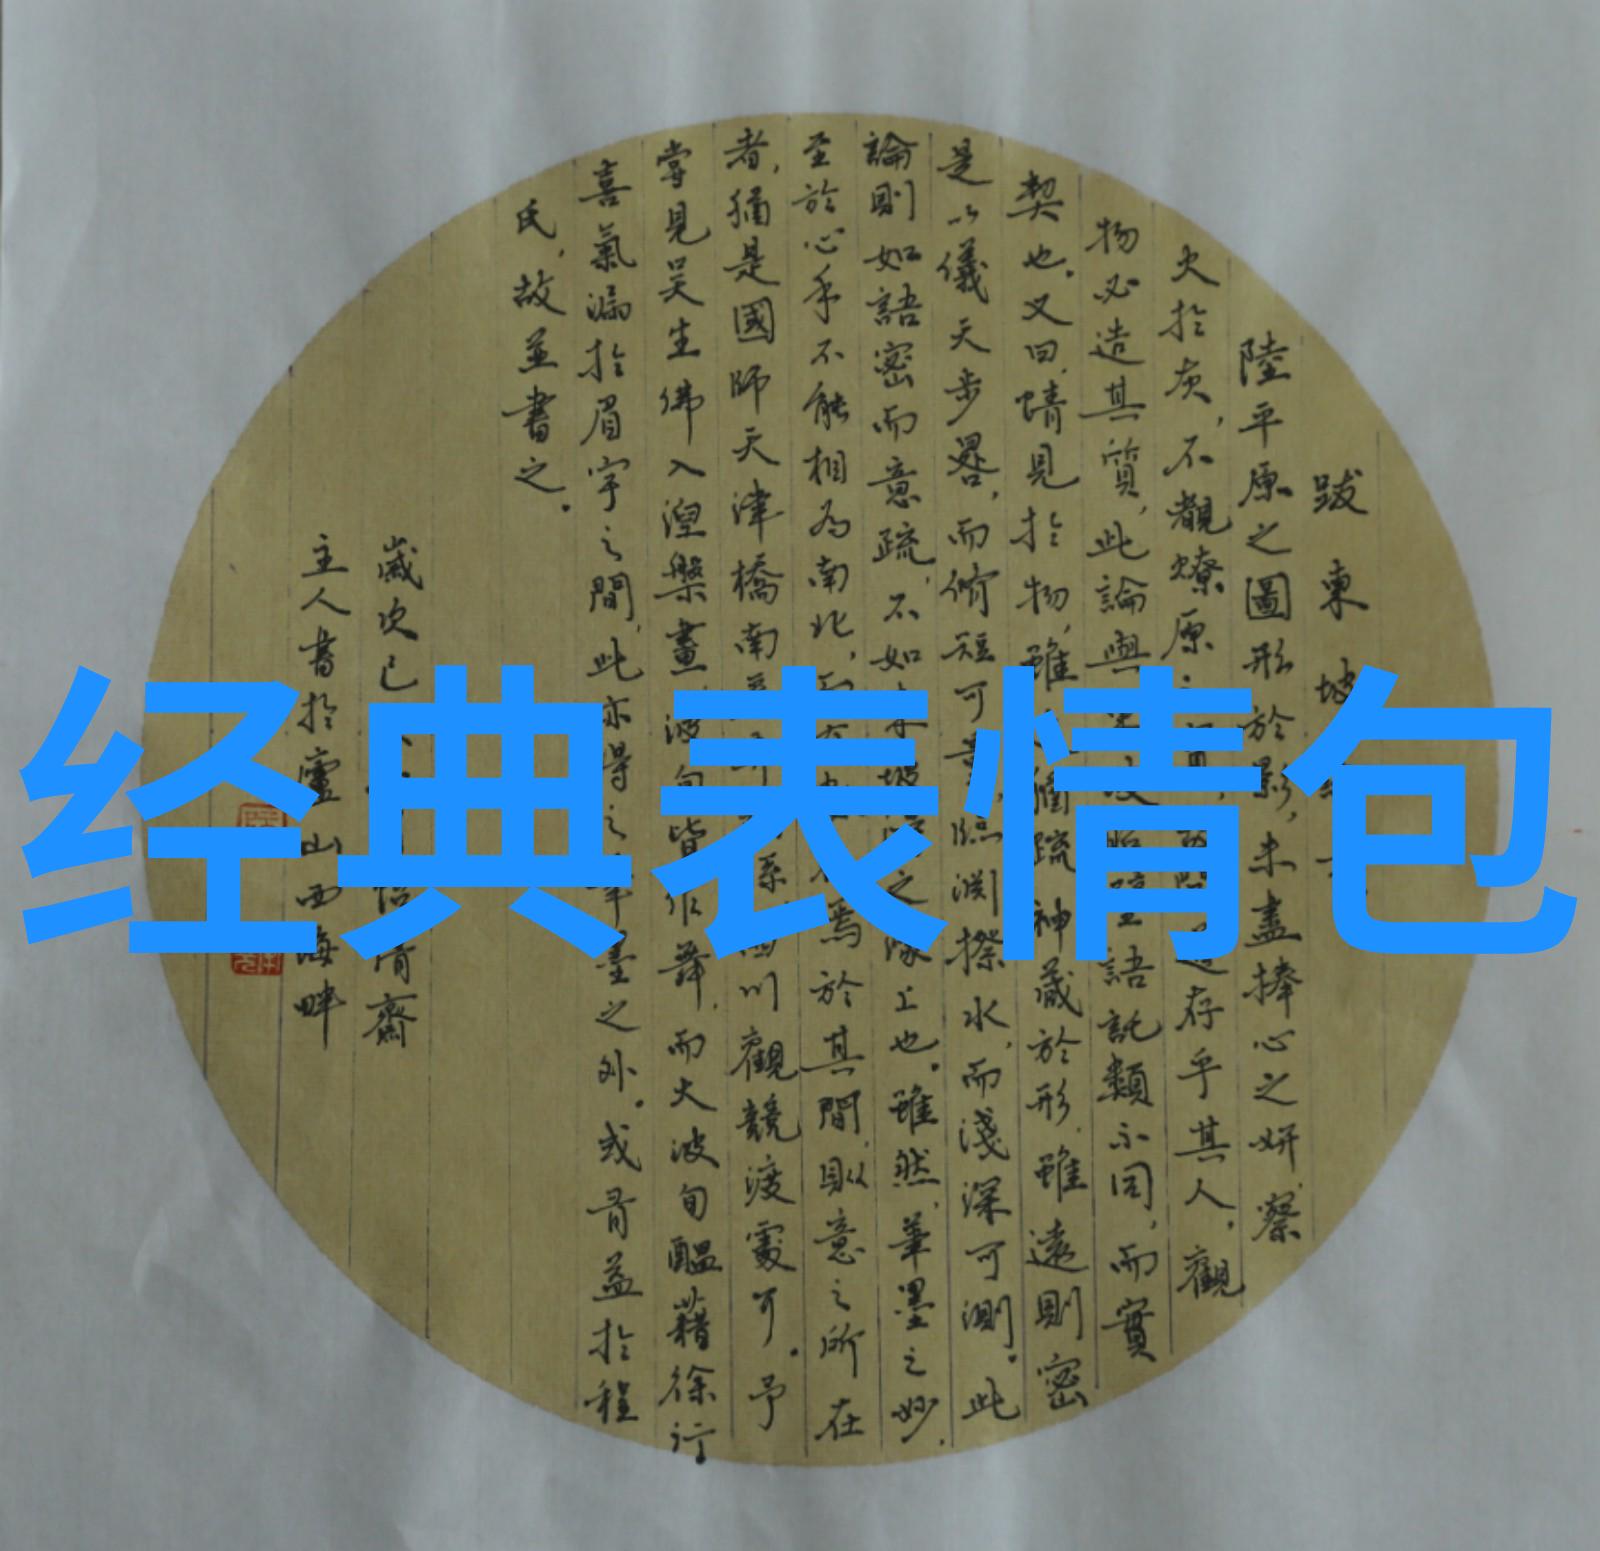 跋東坡
陸平原之圖形於影,未盡捧心之妍,察
火於灰,不覩燎原之存乎其人,觀
物必造其質,此論與語託類不同,而實
契也。又曰,情見於物,雖猶疏,神藏於形,雖遠則密
是以儀天步晷,而脩短可量,臨淵揆水,而淺深可測。此
論則如語密而意疏,不如之上也。雖然,筆墨之妙,
至於心手不能相為南北,而焉於其間,則以意之所在
者,猶是國師天津橋南川觀競渡處可。予
嘗見吳生佛入涅槃畫,波旬皆作舞,而大波旬醞藉徐行
喜氣漏於眉宇之間,此亦得之筆墨之外。或有益於程
氏,故並書之。
歲次已齋
主人書於靈山西海畔
经典表情包